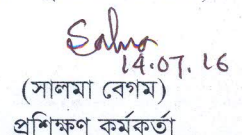 Salma
14.07.16
(সালমা বেগম)
প্রশিক্ষণ কর্মকর্তা